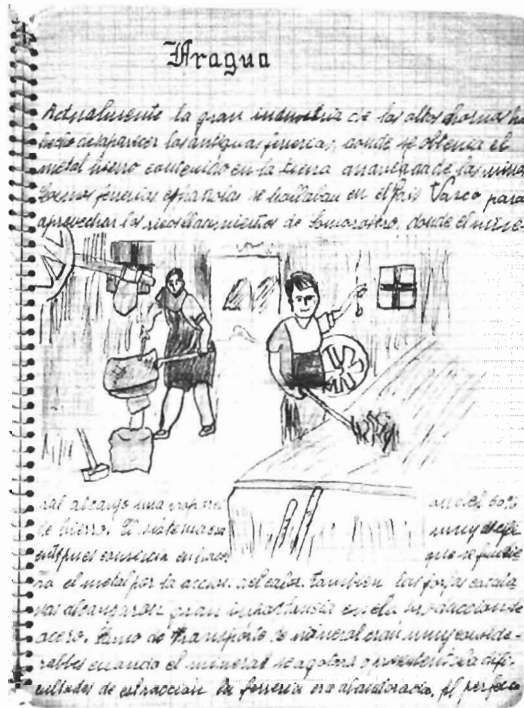 Fragua
Actualmente la gran industria de los altos hornos ha
hecho desaparecer las antiguas ferrerias, donde se obtenia el
metal hierro contenido en la tierra arrancada de las minas
ferrerias españolas se hallaban en el Pais Vasco para
aprovechar los yacimientos de Somorostro, donde el mine-
ral alcanza una proporcion del 60%
de hierro. El sistema era muy
pues consistia en hacer que se fundie
ra el metal por la accion del calor. tambien las forjas catala
nas alcanzaron gran importancia en la produccion de
acero. de transporte de mineral eran muy conside-
rables cuando el mineral se agotara o presentara difi-
cultades de extraccion la ferreria era abandonada, el